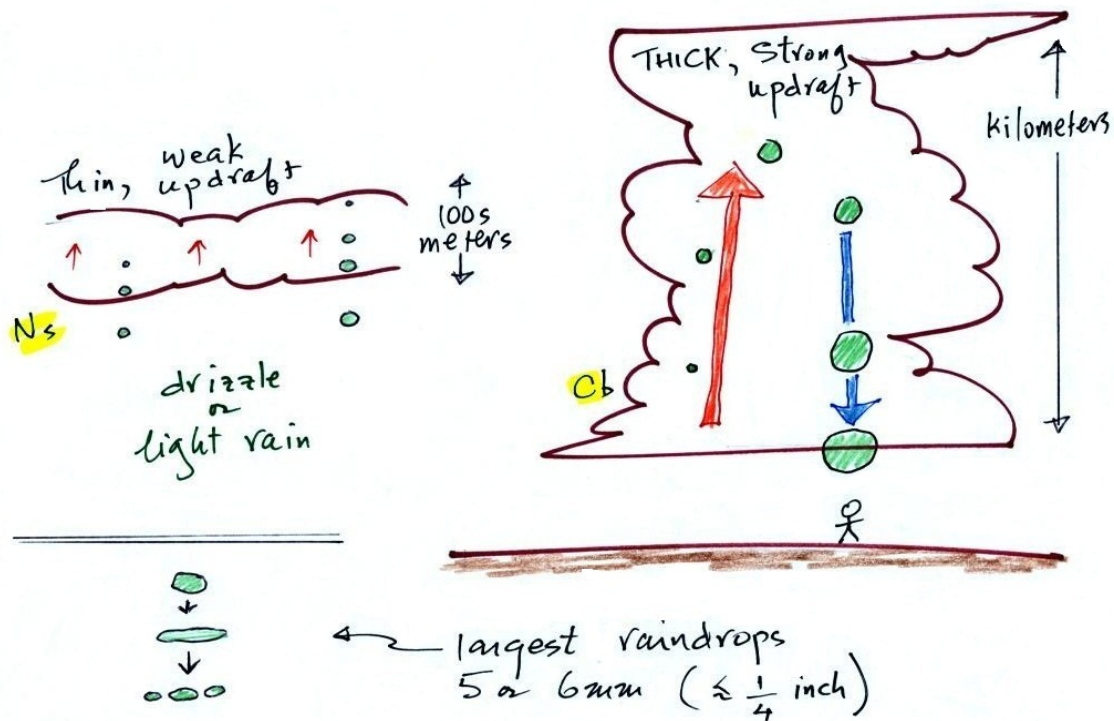 Thin, weak
updraft
100s
meters
Ns
drizzle
or
light rain
THICK, Strong
updraft
kilometers
Cb
largest raindrops
5 or 6mm (≲ 1/4 inch)